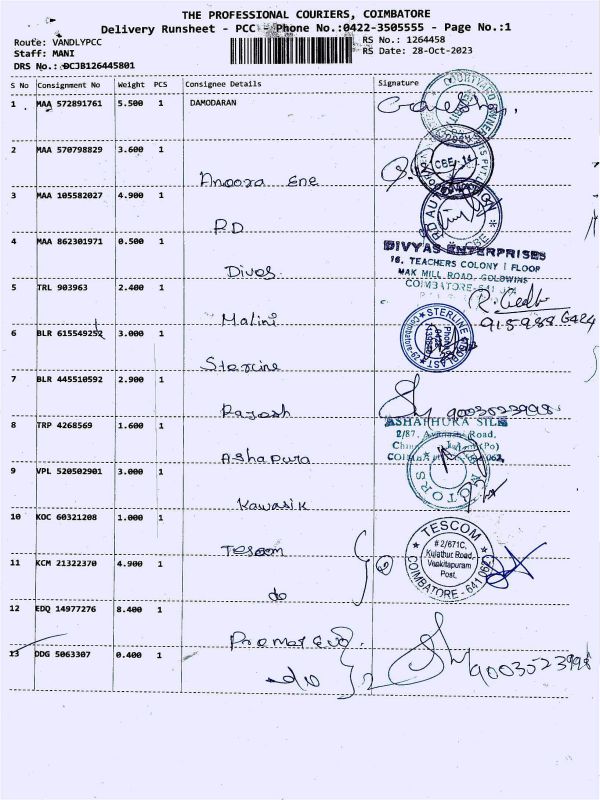 THE PROFESSIONAL COURIERS, COIMBATORE
Delivery Runsheet - PCC - Phone No.:0422-3505555 - Page No.:1
Route: VANDLYPCC
RS No.: 1264458
Staff: MANI
RS Date: 28-Oct-2023
DRS No.: DCJB126445801
S No Consignment No Weight PCS Consignee Details Signature
1 MAA 572891761 5.500 1 DAMODARAN
2 MAA 570798829 3.600 1
CBE-14
3 MAA 105582027 4.900 1
RD
4 MAA 862301971 0.500 1
DIVYAS ENTERPRISES
16, TEACHERS COLONY I FLOOR
MAK MILL ROAD, GOLDWINS
COIMBATORE-641
5 TRL 903963 2.400 1
Malini
6 BLR 615549252 3.000 1
STERLINE
7 BLR 445510592 2.900 1
Rajesh
9003523998
8 TRP 4268569 1.600 1
ASHAPHURA
2/87,
Road,
Ashapura
9 VPL 520502901 3.000 1
Kawasik
10 KOC 60321208 1.000 1
Tescom
TESCOM
# 2/671C,
Kulathur Road,
Venkitapuram
Post,
COIMBATORE - 641 062
11 KCM 21322370 4.900 1
do
2
12 EDQ 14977276 8.400 1
13 DDG 5063307 0.400 1
do
2
9003523998